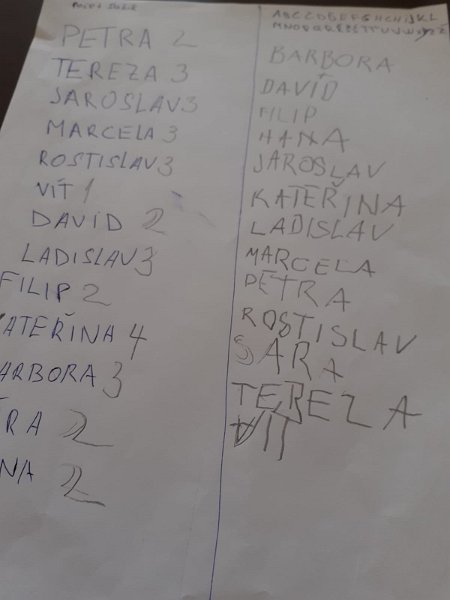 POČET SLAB
PETRA 2
TEREZA 3
JAROSLAV 3
MARCELA 3
ROSTISLAV 3
VÍT 1
DAVID 2
LADISLAV 3
FILIP 2
ATEŘINA 4
ARBORA 3
RA 2
NA 2
BARBORA
DAVID
FILIP
HANA
JAROSLAV
KATEŘINA
LADISLAV
MARCELA
PETRA
ROSTISLAV
SÁRA
TEREZA
VÍT